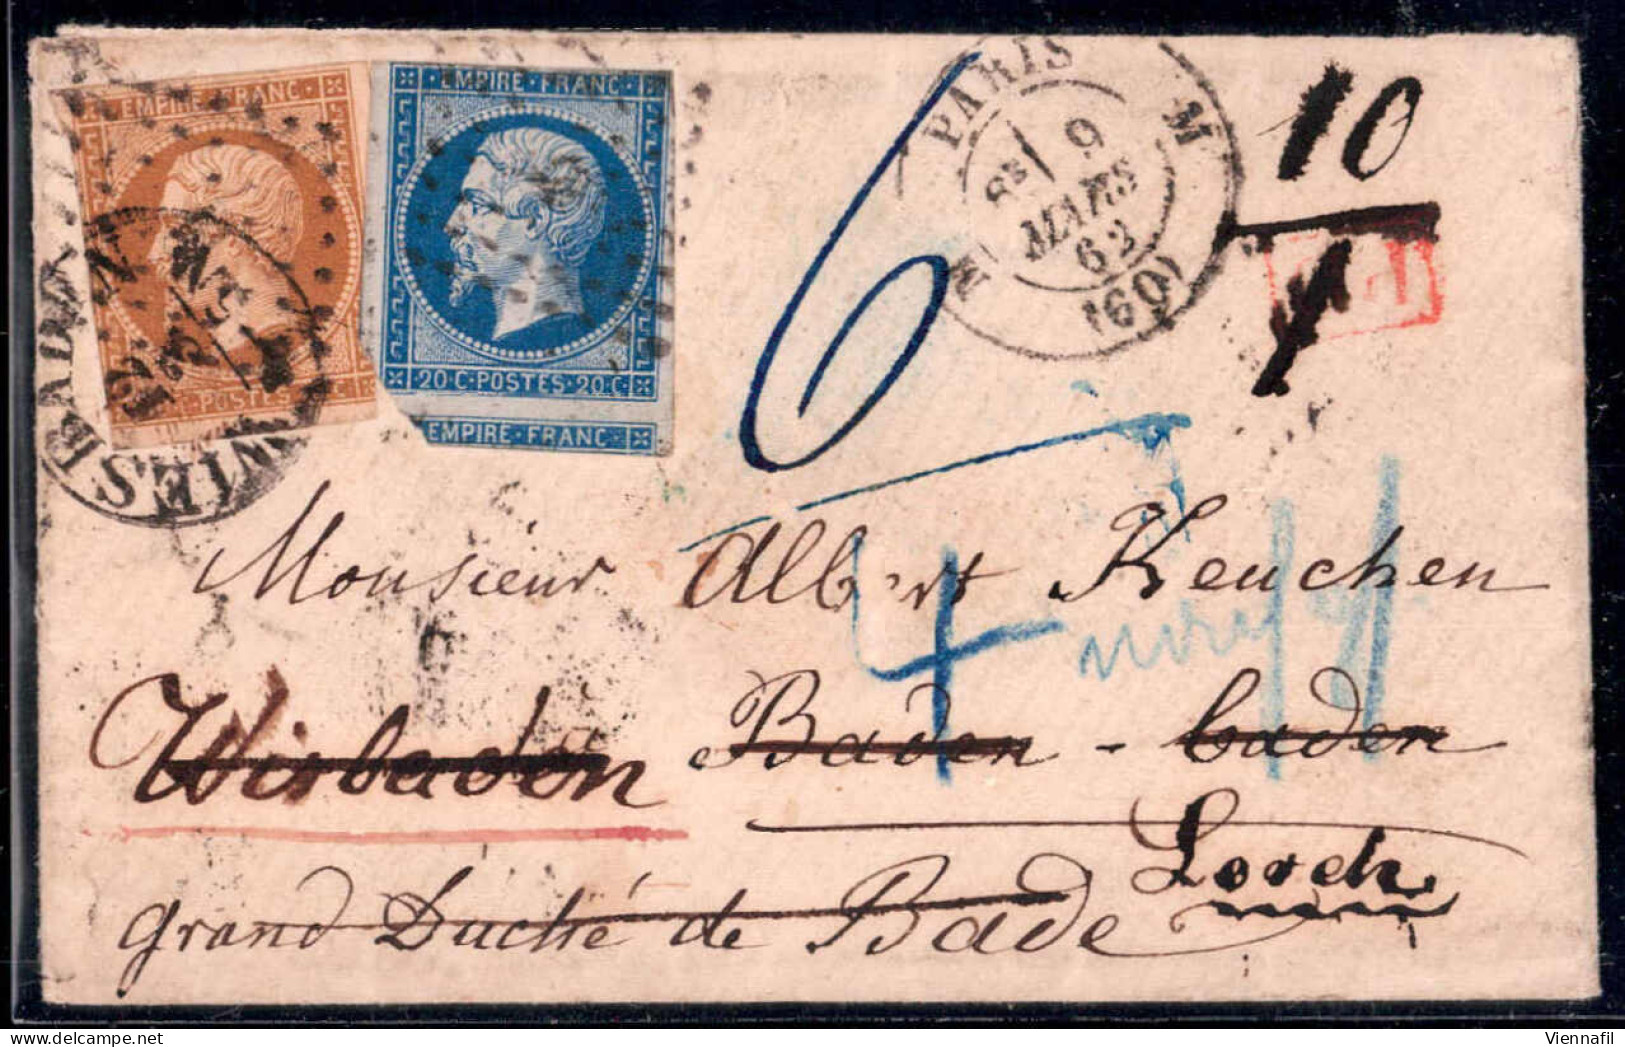 EMPIRE·FRANC·
·POSTES·
EMPIRE·FRANC·
20·C·POSTES·20·C·
EMPIRE·FRANC·
WIESBADEN
PARIS
9
MARS
62
(60)
6
10
P.D.
4
Monsieur Albert Keuchen
Wisbaden Baden-baden
Lorch
grand Duché de Bade
Viennafil